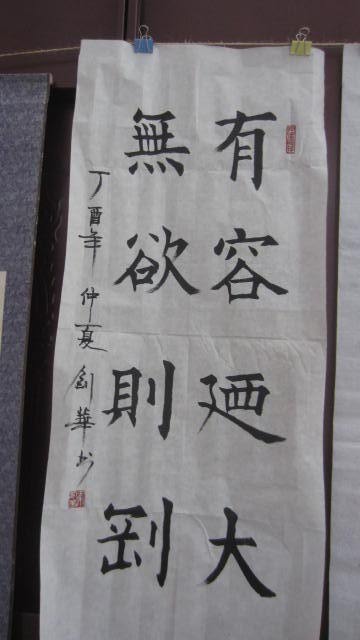 有容廼大
無欲則剛
丁酉年 仲夏 華书